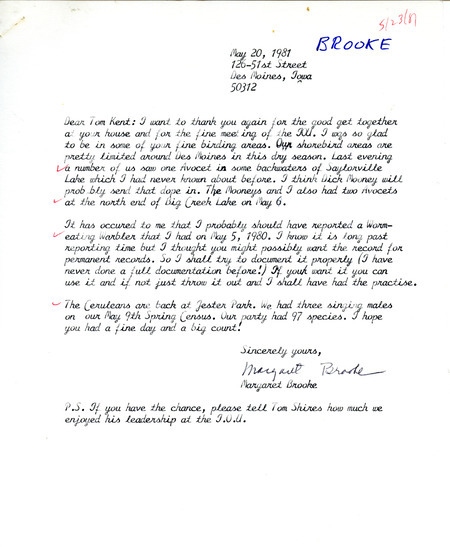 5/23/81
BROOKE
May 20, 1981
126-51st Street
Des Moines, Iowa
50312
Dear Tom Kent: I want to thank you again for the good get together
at your house and for the fine meeting of the IOU. I was so glad
to be in some of your fine birding areas. Our shorebird areas are
pretty limited around Des Moines in this dry season. Last evening
a number of us saw one Avocet in some backwaters of Saylorville
Lake which I had never known about before. I think Dick Mooney will
prob.bly send that dope in. The Mooneys and I also had two Avocets
at the north end of Big Creek Lake on May 6.
It has occured to me that I probably should have reported a Worm-
eating Warbler that I had on May 5, 1980. I know it is long past
reporting time but I thought you might possibly want the record for
permanent records. So I shall try to document it properly (I have
never done a full documentation before!) If youk want it you can
use it and if not just throw it out and I shall have had the practise.
The Ceruleans are back at Jester Park. We had three singing males
on our May 9th Spring Census. Our party had 97 species. I hope
you had a fine day and a big count!
Sincerely yours,
Margaret Brooke
Margaret Brooke
P.S. If you have the chance, please tell Tom Shires how much we
enjoyed his leadership at the I.O.U.